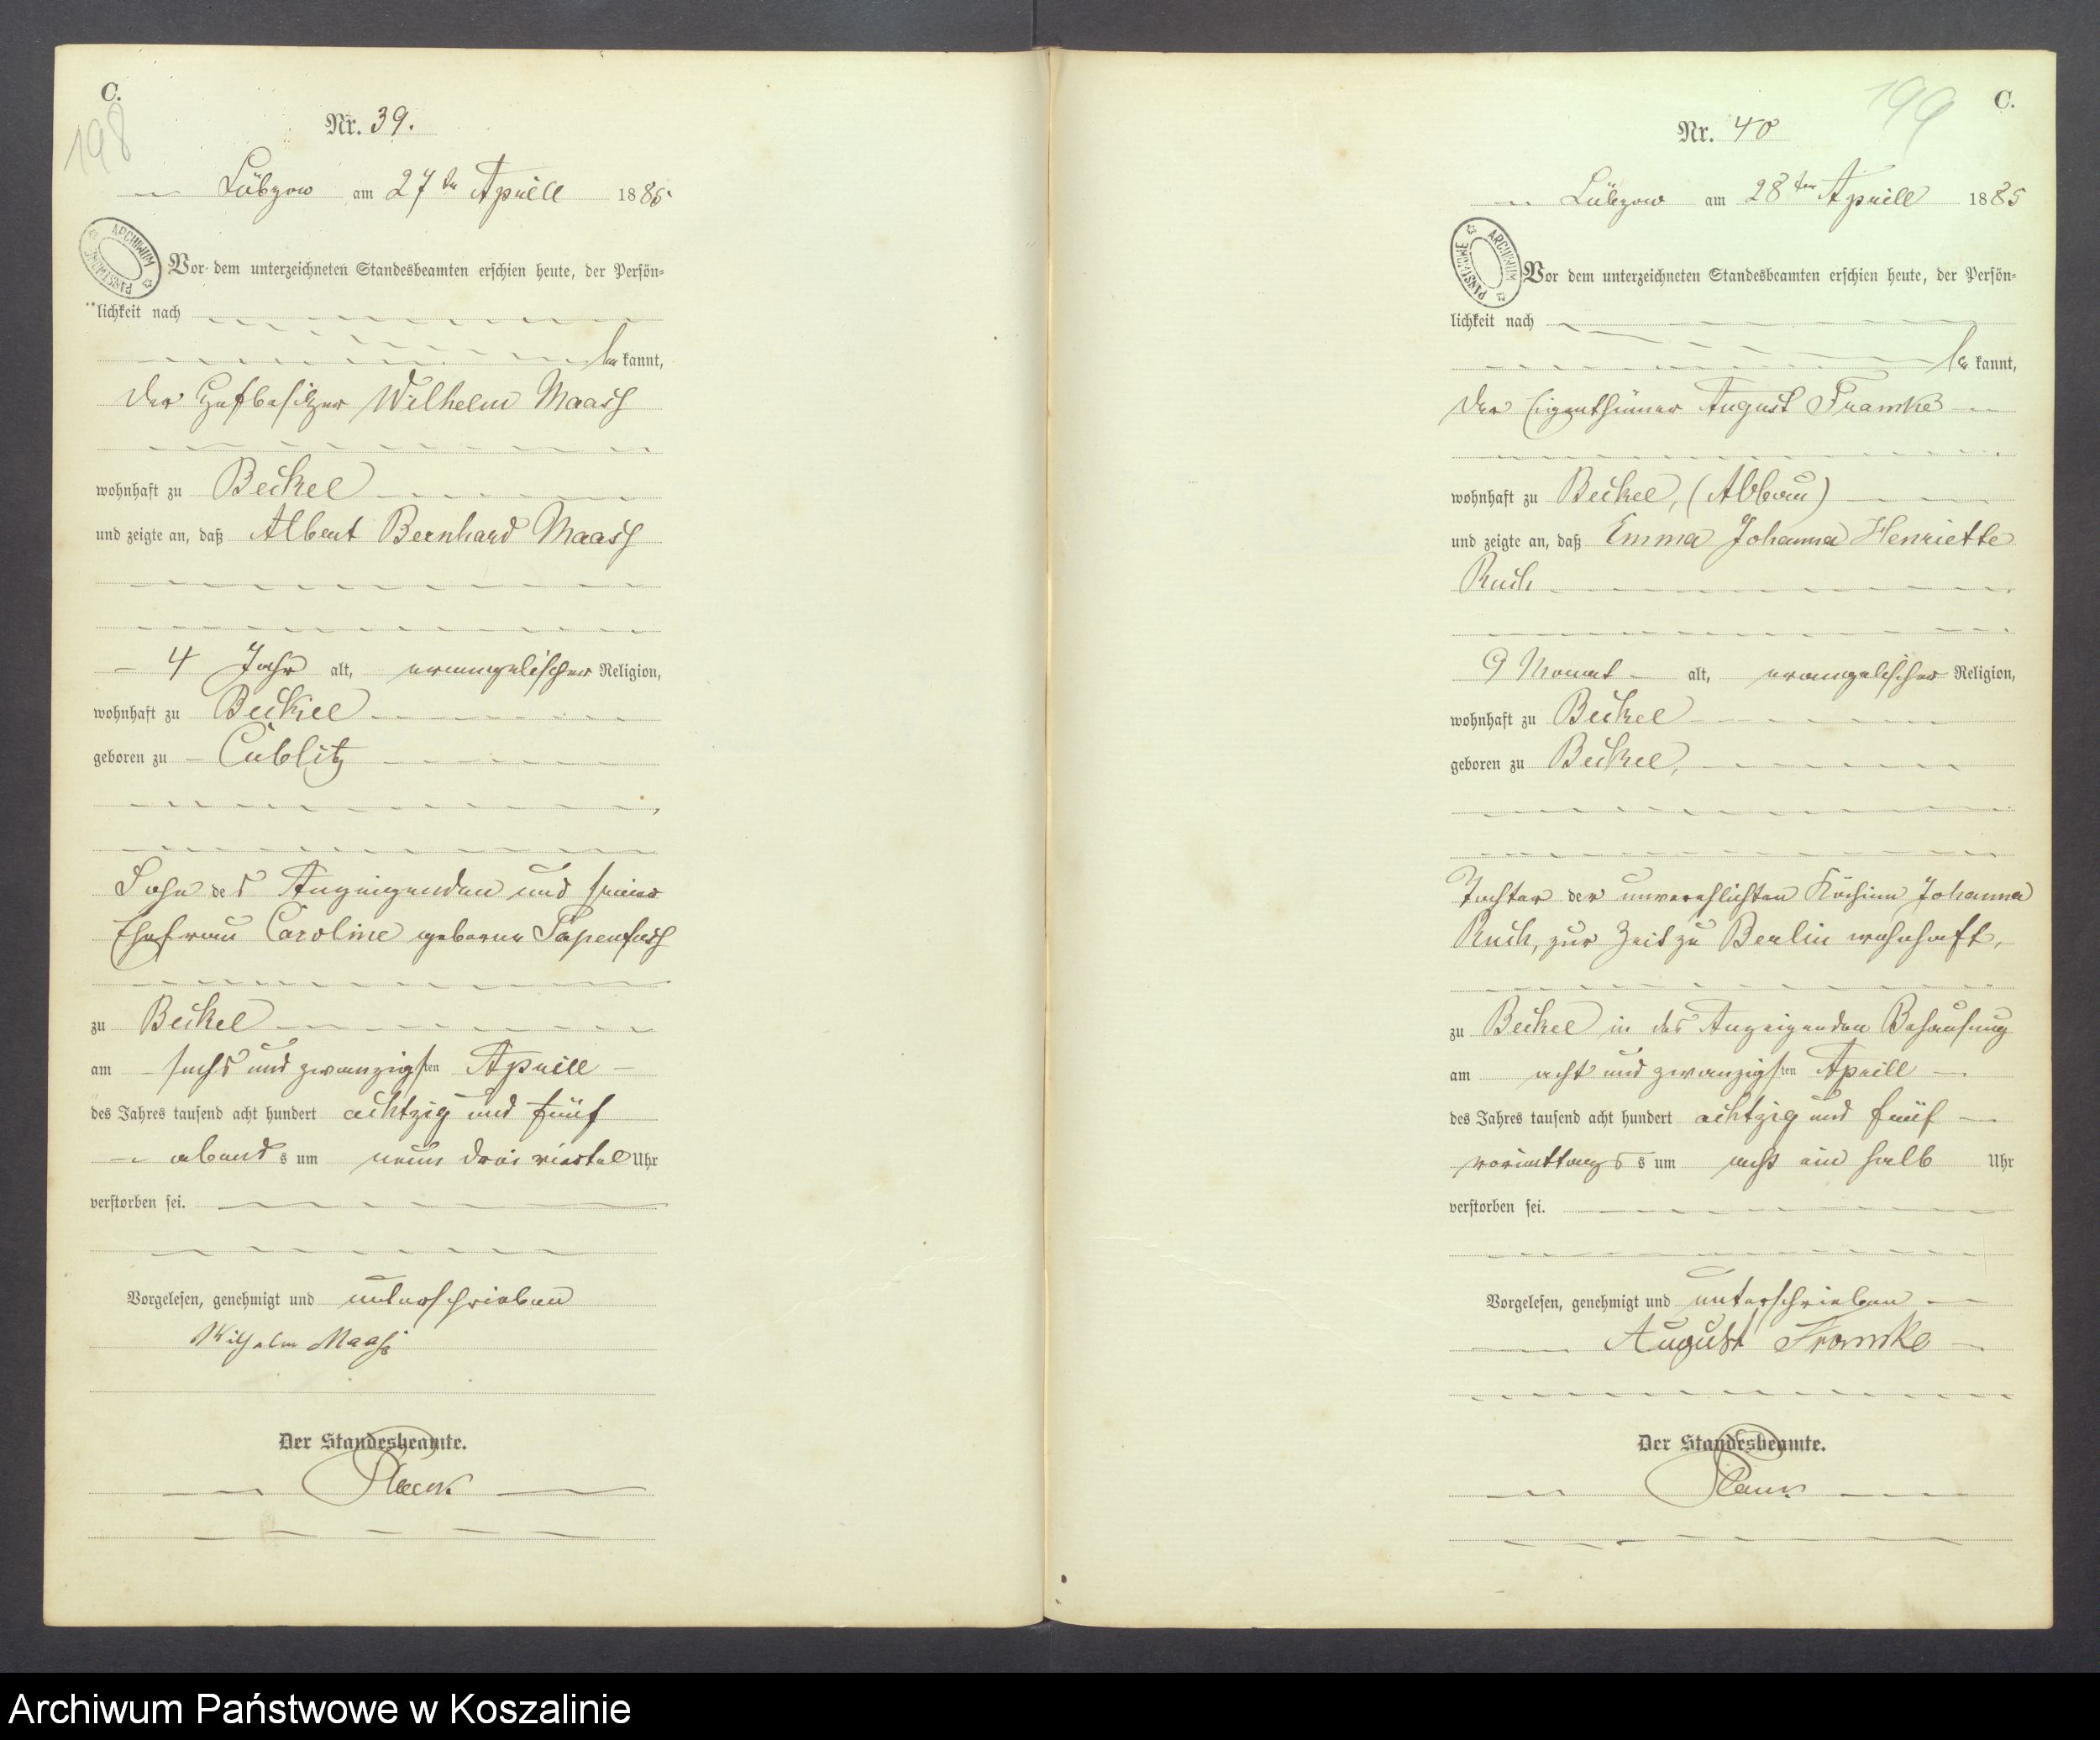 C.
198
Nr. 39.
Lübzow am 27ten Aprill 1885
ARCHIWUM PAŃSTWOWE
Vor dem unterzeichneten Standesbeamten erschien heute, der Persön-
lichkeit nach
be kannt,
der Hofbesitzer Wilhelm Maaß
wohnhaft zu Beckel
und zeigte an, daß Albert Bernhard Maaß
4 Jahr alt, evangelischer Religion,
wohnhaft zu Beckel
geboren zu Cublitz
Sohn des Anzeigenden und seiner
Ehefrau Caroline geborene Papenfuß
zu Beckel
am sechs und zwanzigsten Aprill
des Jahres tausend acht hundert achtzig und fünf
abends um neun drei viertel Uhr
verstorben sei.
Vorgelesen, genehmigt und unterschrieben
Wilhelm Maaß
Der Standesbeamte.
C.
199
Nr. 40
Lübzow am 28ten Aprill 1885
ARCHIWUM PAŃSTWOWE
Vor dem unterzeichneten Standesbeamten erschien heute, der Persön-
lichkeit nach
be kannt,
der Eigenthümer August Framke
wohnhaft zu Beckel, (Abbau)
und zeigte an, daß Emma Johanna Henriette
Ruch
9 Monat alt, evangelischer Religion,
wohnhaft zu Beckel
geboren zu Beckel,
Tochter der unverehlichten Köchinn Johanna
Ruch, zur Zeit zu Berlin wohnhaft,
zu Beckel in des Anzeigenden Behausung
am acht und zwanzigsten Aprill
des Jahres tausend acht hundert achtzig und fünf
vormittags s um acht ein halb Uhr
verstorben sei.
Vorgelesen, genehmigt und unterschrieben
August Framke
Der Standesbeamte.
Archiwum Państwowe w Koszalinie